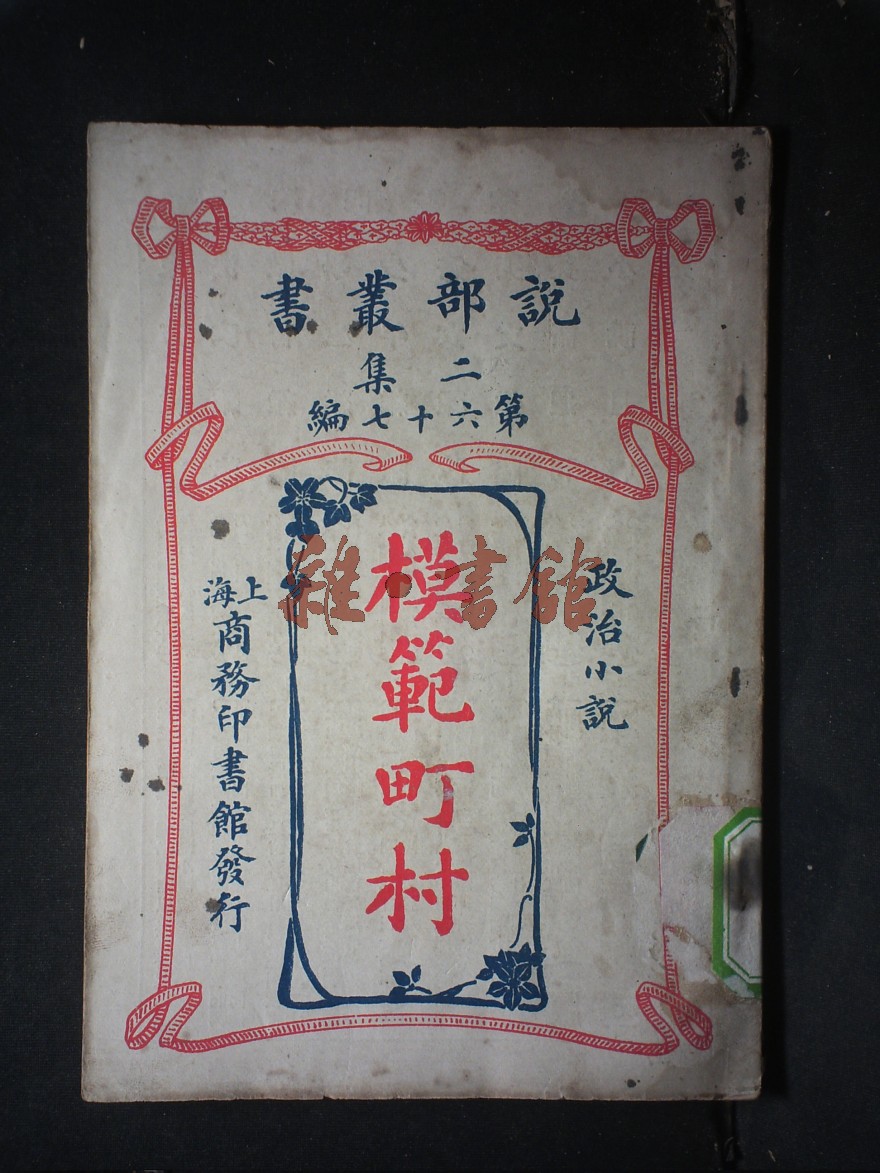 說部叢書
二集
第六十七編
政治小說
模範町村
上海
商務印書館發行
雜·書館